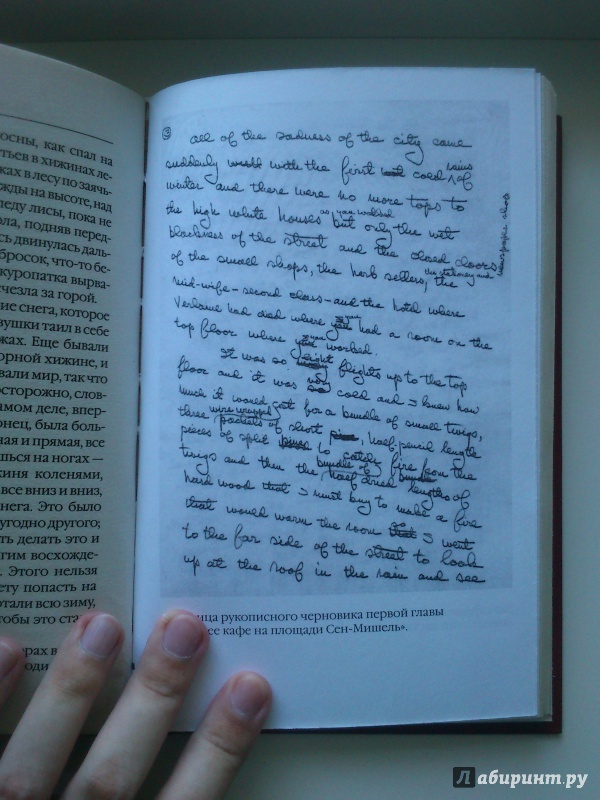 осны, как спал на
тьев в хижинах ле-
ках в лесу по заячь-
жды на высоте, над
леду лисы, пока не
ола, подняв перед-
сь двинулась даль-
бросок, что-то бе-
куропатка вырва-
счезла за горой.
ие снега, которое
вушки таил в себе
жах. Еще бывали
орной хижине, и
вали мир, так что
сторожно, слов-
амом деле, впер-
онец, была боль-
ная и прямая, все
шься на ногах —
киня коленями,
все вниз и вниз,
нега. Это было
угодно другого;
ть делать это и
гим восхожде-
Этого нельзя
ету попасть на
отали всю зиму,
тобы это ста
орах в
оди
3
All of the sadness of the city came
suddenly with the first cold rains of
winter and there were no more tops to
the high white houses as you walked but only the wet
blackness of the street and the closed doors
of the small shops, the herb sellers, the stationery and newspaper shops, the
mid-wife - second class - and the hotel where
Verlaine had died where you had a room on the
top floor where you worked.
It was six or eight flights up to the top
floor and it was very cold and I knew how
much it would cost for a bundle of small twigs,
three wire wrapped packets of short, half-pencil length
pieces of split pine to catch fire from the
twigs and then the bundle of half dried lengths of
hard wood that I must buy to make a fire
that would warm the room so I went
to the far side of the street to look
up at the roof in the rain and see
ица рукописного черновика первой главы
ее кафе на площади Сен-Мишель».
Лабиринт.ру